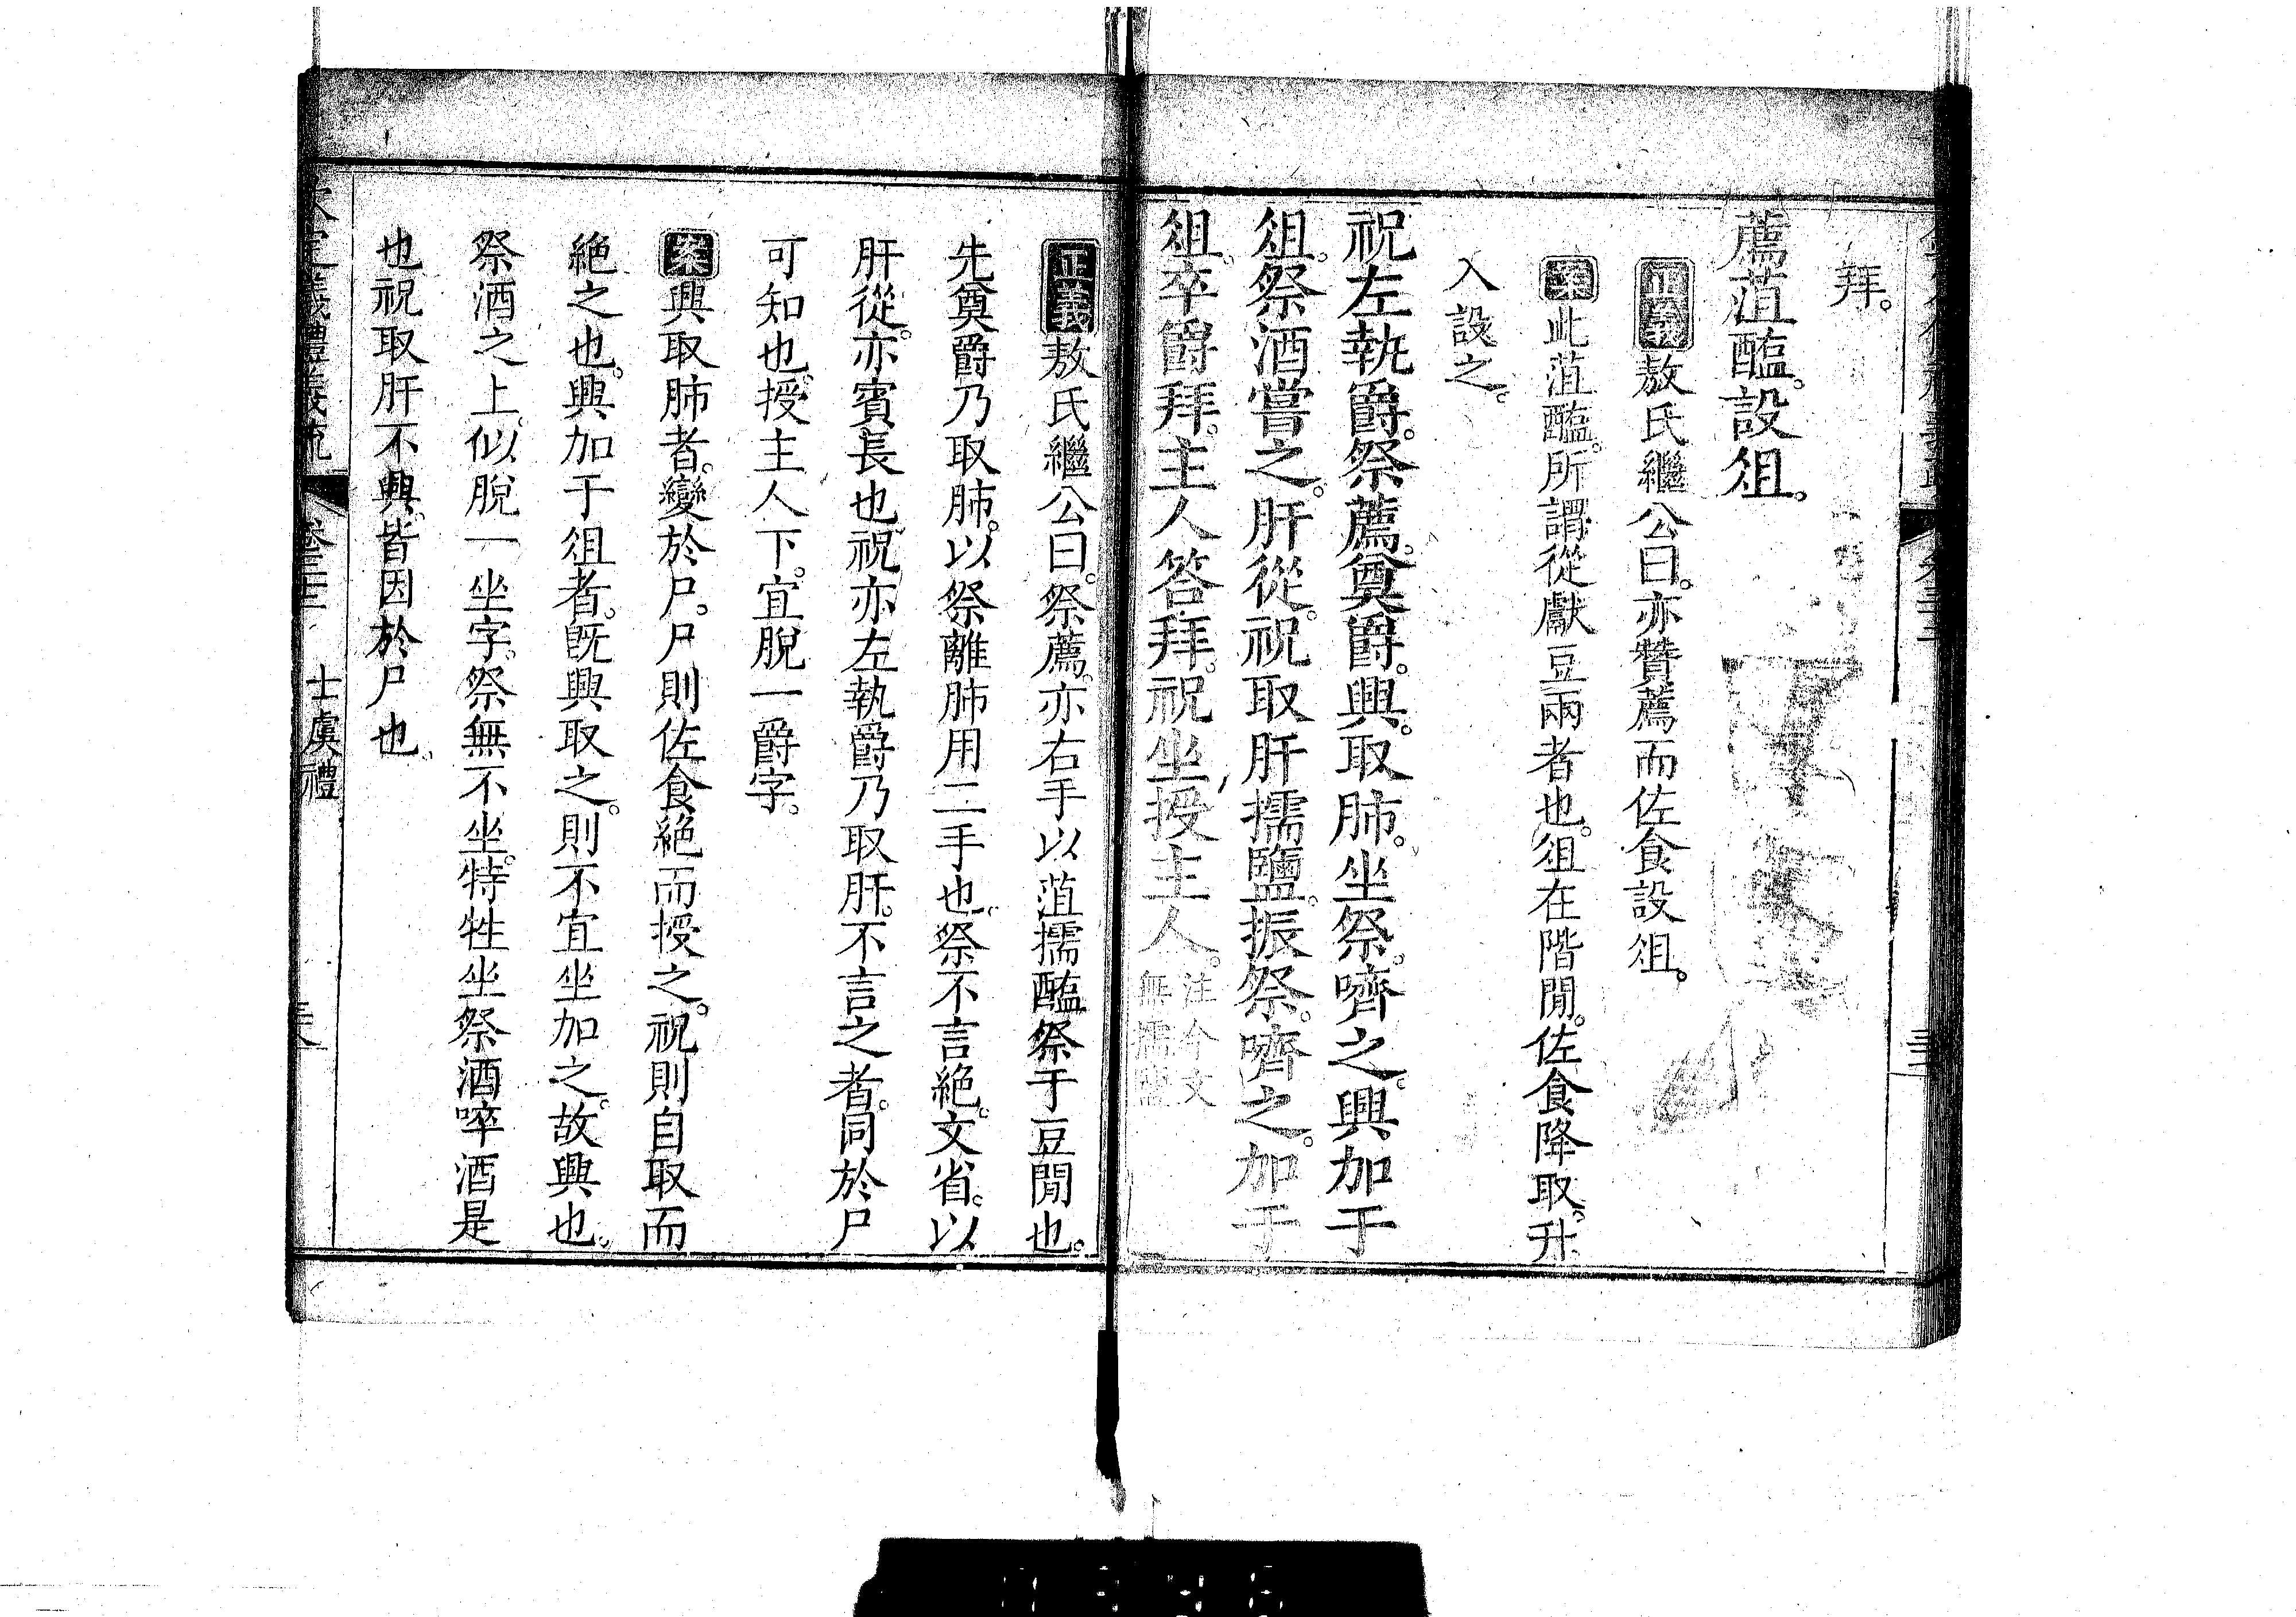 拜。
薦菹醢。設俎。
正義敖氏繼公曰。亦贊薦而佐食設俎。
案此菹醢。所謂從獻豆兩者也。俎在階閒。佐食降取。升
入設之。
祝左執爵。祭薦。奠爵。興。取肺。坐祭。嚌之。興加于
俎。祭酒嘗之。肝從。祝取肝擩鹽。振祭。嚌之。加于
俎。卒爵拜。主人答拜。祝坐授主人。注今文
無擩鹽
正義敖氏繼公曰。祭薦。亦右手以菹擩醢祭于豆閒也。
先奠爵乃取肺。以祭離肺用二手也。祭不言絕。文省。以
肝從。亦賓長也。祝亦左執爵乃取肝。不言之者。同於尸
可知也。授主人下。宜脫一爵字。
案興取肺者。變於尸。尸則佐食絕而授之。祝則自取而
絕之也。興加于俎者。旣興取之。則不宜坐加之。故興也。
祭酒之上。似脫一坐字。祭無不坐。特牲坐祭酒啐酒是
也。祝取肝不興。皆因於尸也。
欽定儀禮義疏 卷三十三 士虞禮